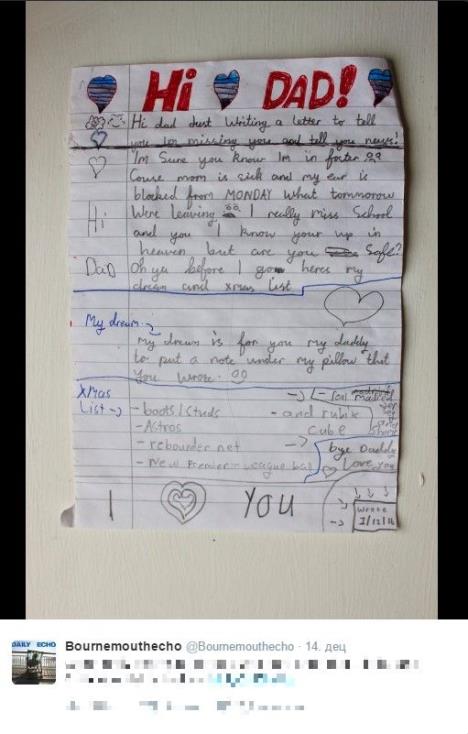 Hi DAD!
Hi dad Just Writing a letter to tell
you Im missing you and tell you news!
I'm Sure you know Im in foster
Couse mom is sick and my ear is
blocked from MONDAY what tommorow
Were leaving I really miss School
Hi
and you I know your up in
heaven but are you Safe?
DaD
Oh ya before I go heres my
dream and xmas List
My dream
My dream is for you my daddy
to put a note under my pillow that
You wrote.
XMas
List →
- boots/studs
- and rubix
cube
- Astros
- rebounder net
- New Premier League ball
bye Daddy
Love you
I YOU
wrote
1/12/16
DAILY ECHO
Bournemouthecho @Bournemouthecho · 14. дец